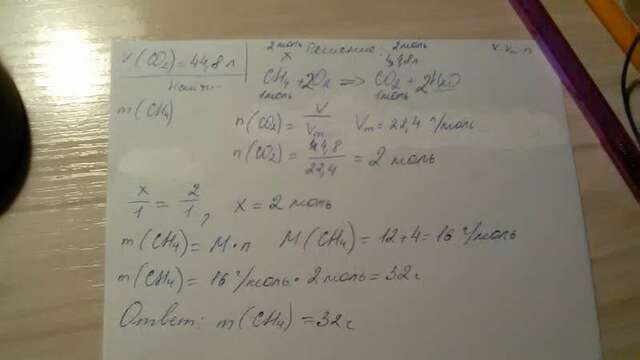 V(CO₂)=44,8 л
Найти:
m(CH₄)
Решение.
2 моль 2 моль
x 44,8 л
CH₄ + 2O₂ => CO₂ + 2H₂O
1 моль 1 моль
n(CO₂) = V/Vm Vm = 22,4 г/моль
n(CO₂) = 44,8/22,4 = 2 моль
x/1 = 2/1, x = 2 моль
m(CH₄) = M·n M(CH₄) = 12+4 = 16 г/моль
m(CH₄) = 16 г/моль · 2 моль = 32 г
Ответ: m(CH₄) = 32 г